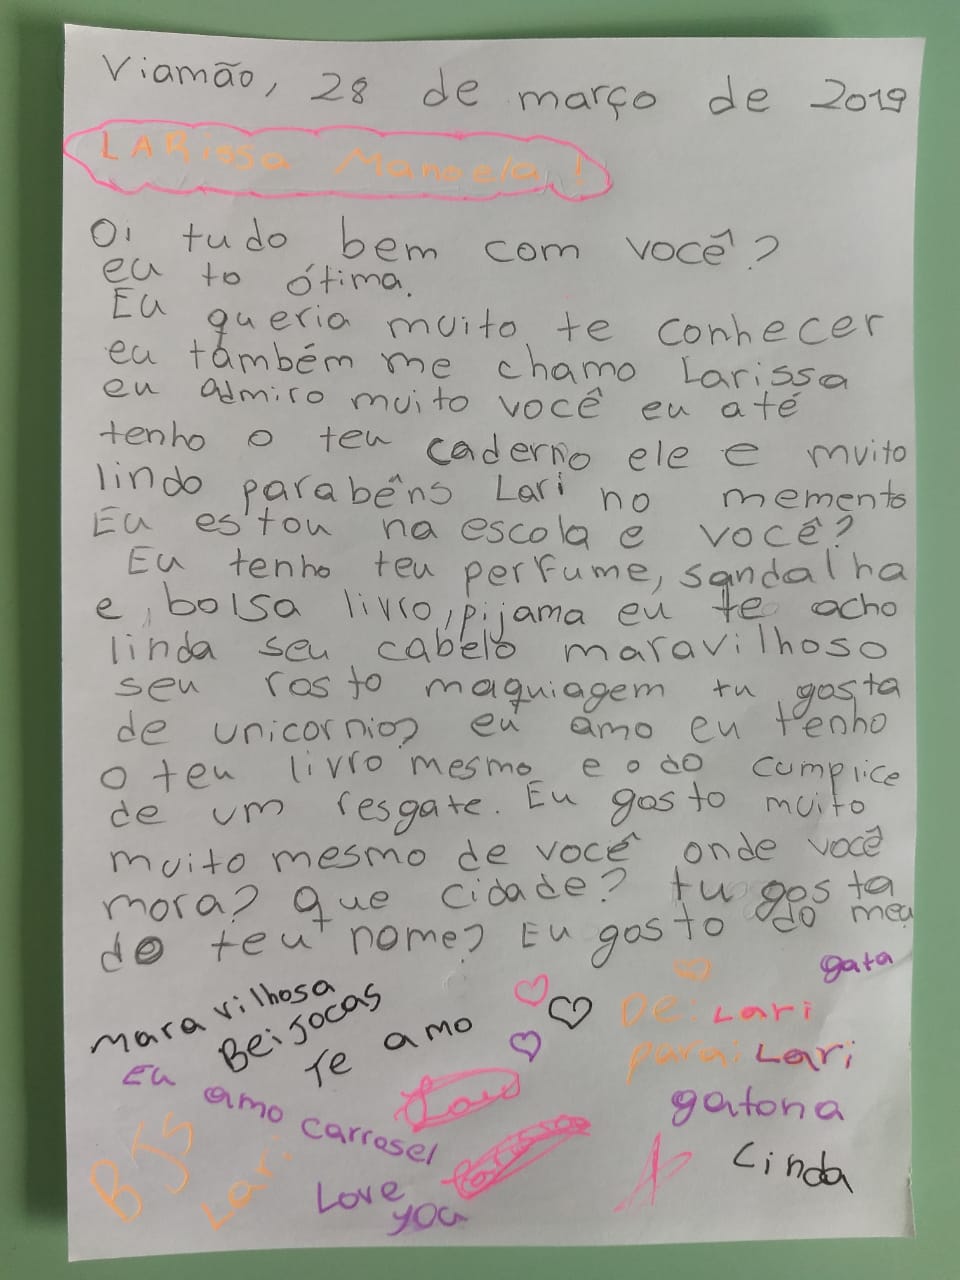 Viamão, 28 de março de 2019
LARissa Manoela!
Oi tudo bem com você?
eu to ótima.
Eu queria muito te conhecer
eu também me chamo Larissa
eu admiro muito você eu até
tenho o teu caderno ele e muito
lindo parabêns Lari no memento
Eu estou na escola e você?
Eu tenho teu perfume, sandalha
e, bolsa livro, pijama eu te acho
linda seu cabelo maravilhoso
seu rosto maquiagem tu gosta
de unicornio? eu amo eu tenho
o teu livro mesmo e o do cumplice
de um resgate. Eu gosto muito
muito mesmo de você onde você
mora? que cidade? tu gosta
do teu nome? Eu gosto do meu
gata
maravilhosa
Beijocas
Te amo
De: Lari
para: Lari
Eu amo carrosel
gatona
Linda
BJS
Lari
Love
you